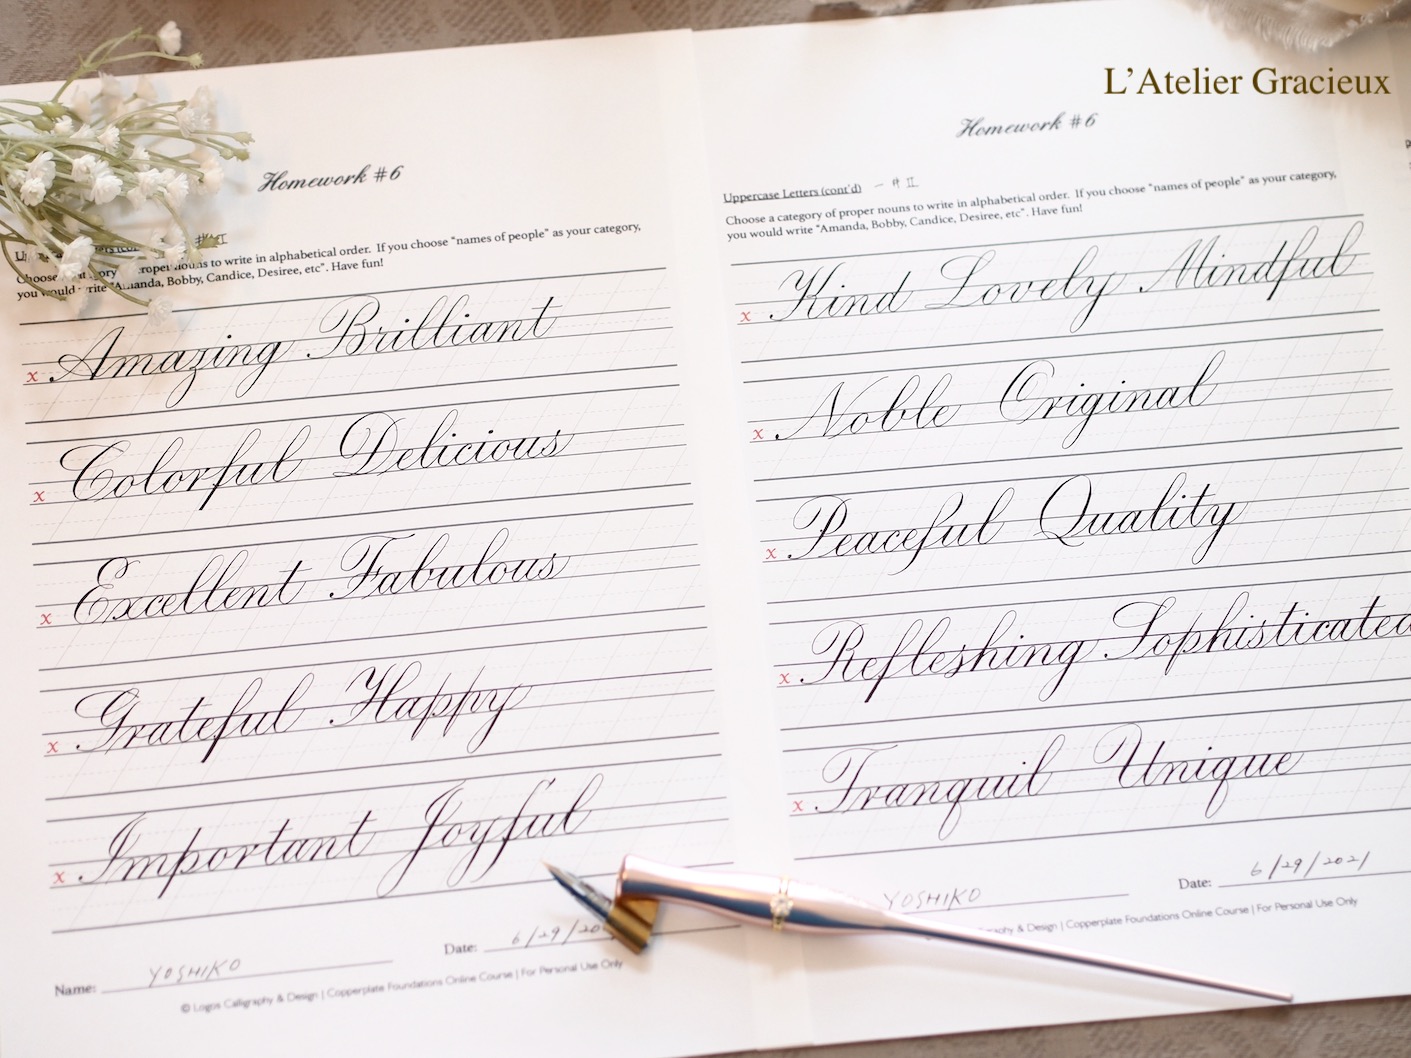 L'Atelier Gracieux
Homework #6
Choose a category of proper nouns to write in alphabetical order. If you choose "names of people" as your category,
you would write "Amanda, Bobby, Candice, Desiree, etc". Have fun!
x Amazing Brilliant
x Colorful Delicious
x Excellent Fabulous
x Grateful Happy
x Important Joyful
Name: YOSHIKO
Date: 6/29/20
© Logos Calligraphy & Design | Copperplate Foundations Online Course | For Personal Use Only
Homework #6
Uppercase Letters (cont'd) - # II
Choose a category of proper nouns to write in alphabetical order. If you choose "names of people" as your category,
you would write "Amanda, Bobby, Candice, Desiree, etc". Have fun!
x Kind Lovely Mindful
x Noble Original
x Peaceful Quality
x Refleshing Sophisticated
x Tranquil Unique
YOSHIKO
Date: 6/29/2021
& Design | Copperplate Foundations Online Course | For Personal Use Only